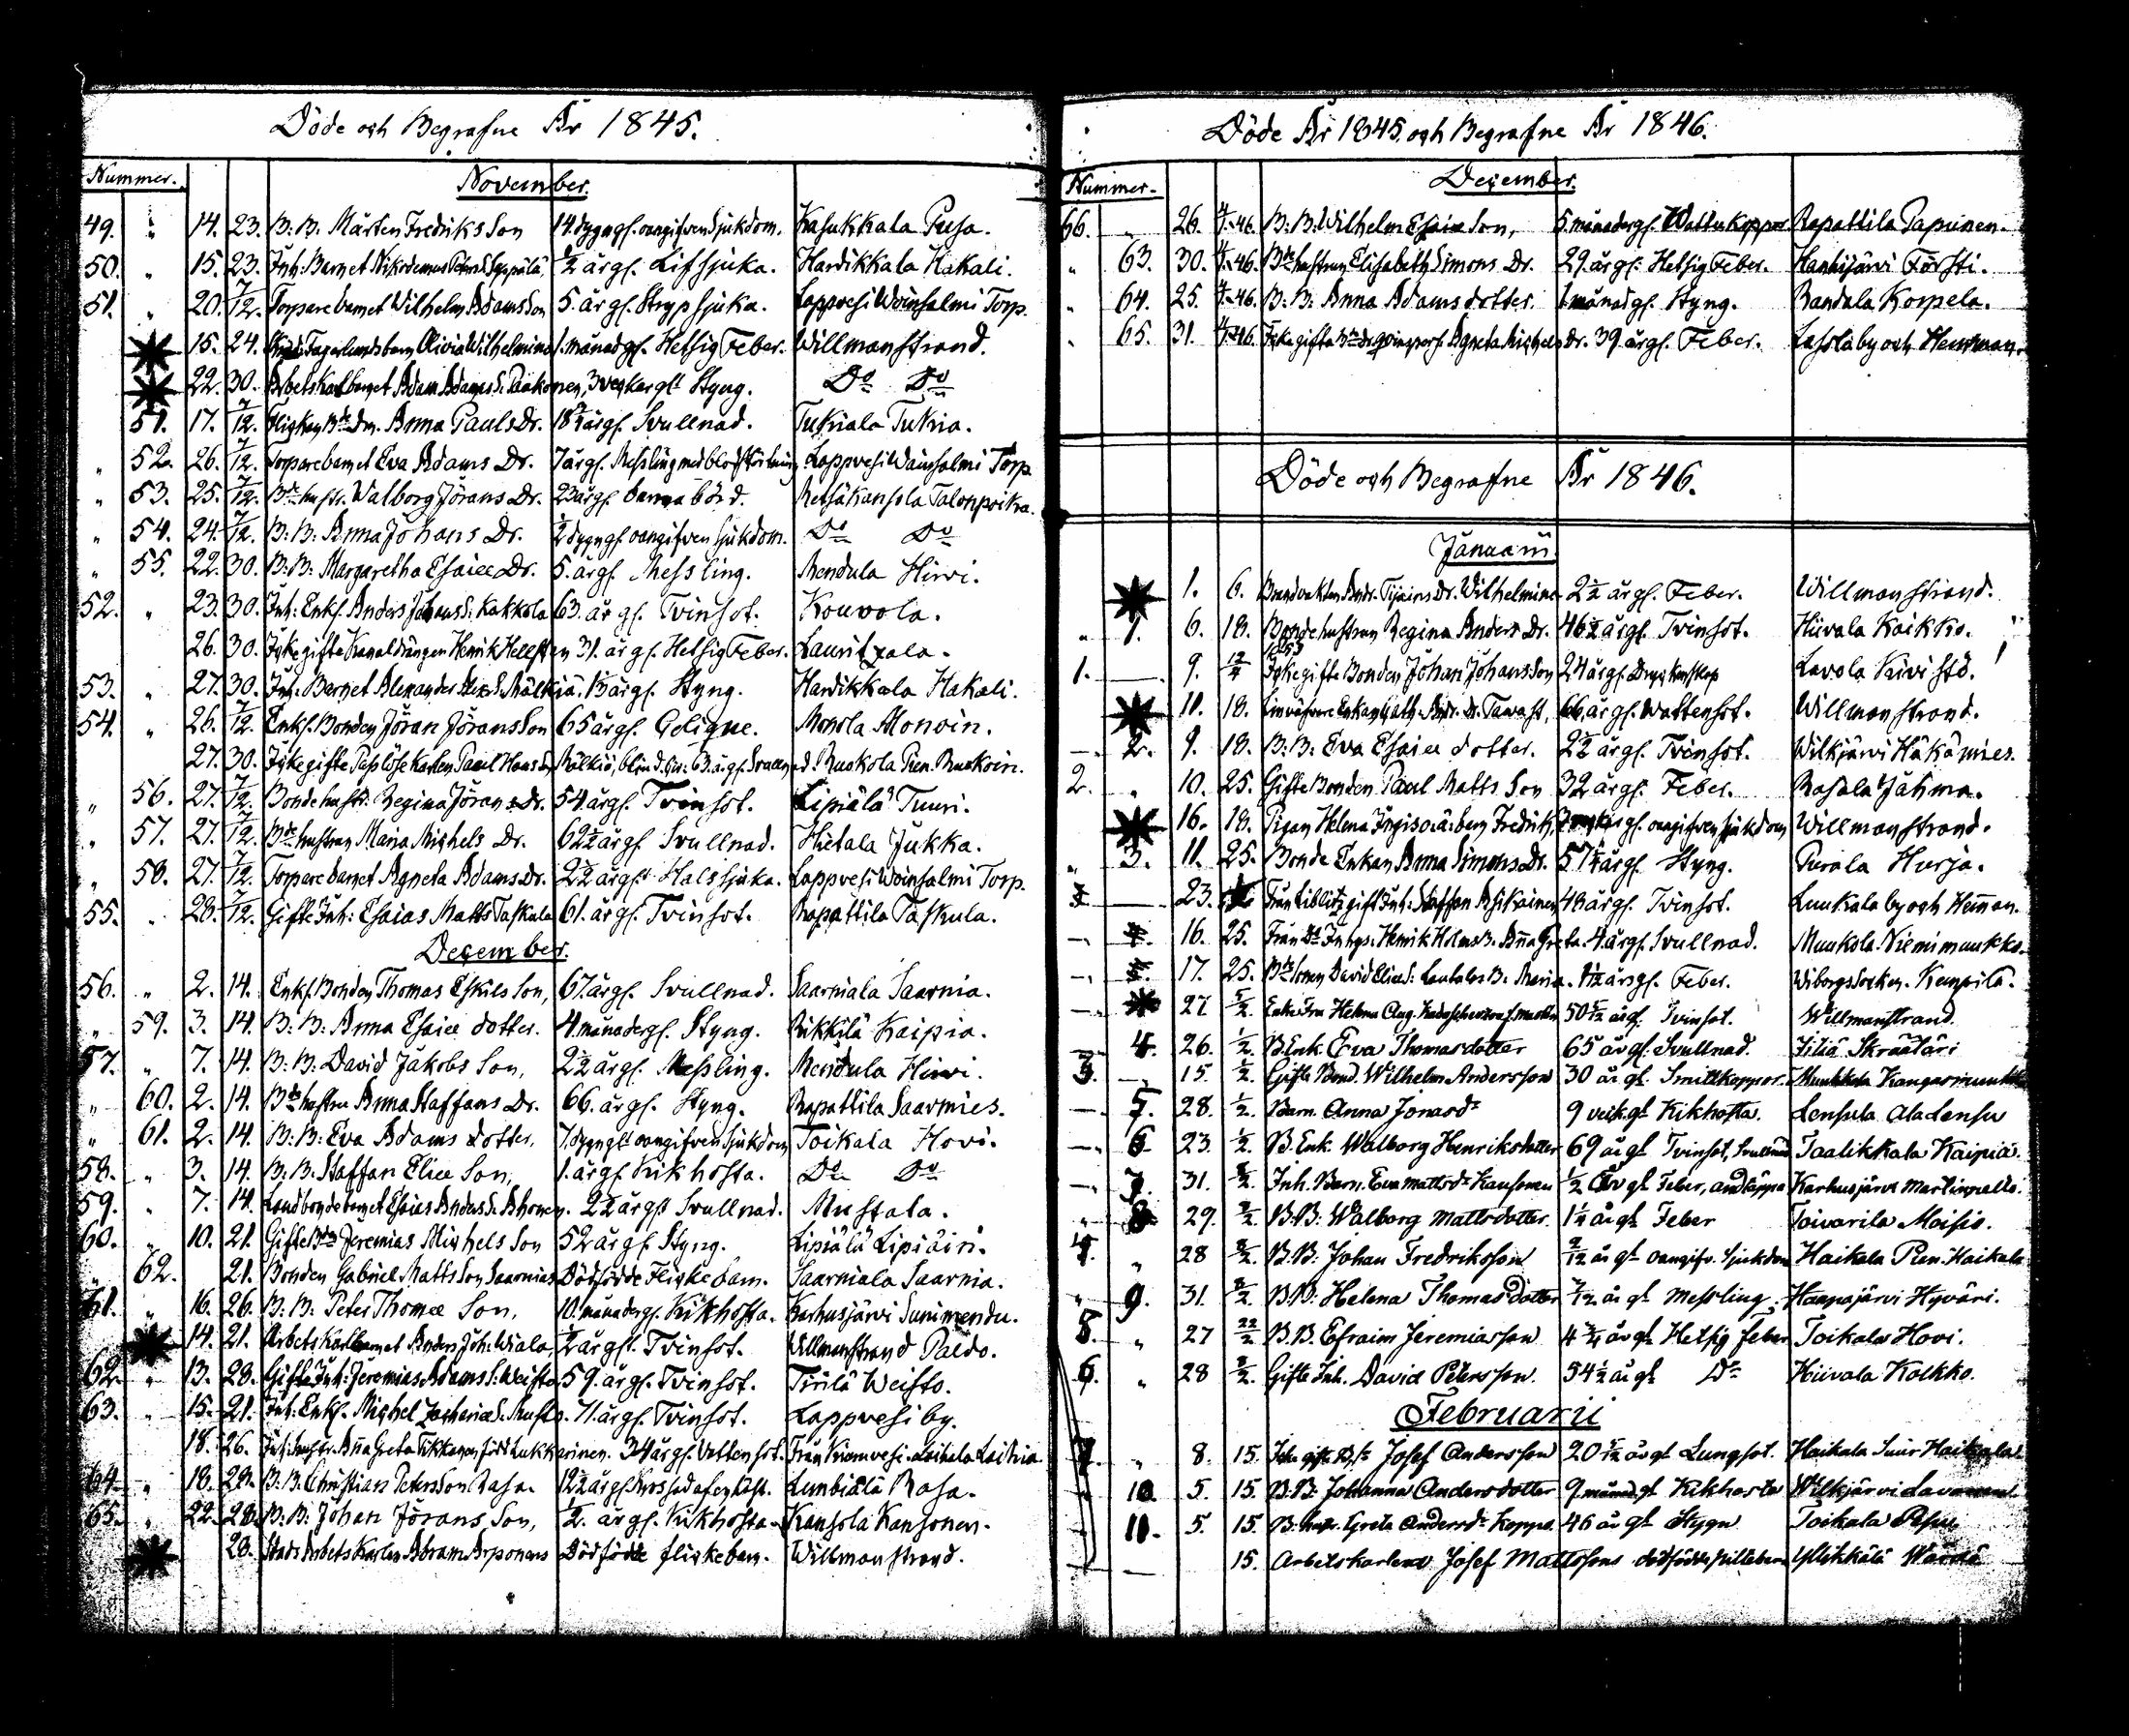 Döde och Begrafne År 1845.
Nummer.
November.
49. " 14. 23. B: B: Mårten Fredriks Son 14. dygn gl. oangifven Sjukdom. Kasukkala Pusa.
50. " 15. 23. Inh: Barnet Nikodemus Seppälä ½ år gl. Lifsjuka. Hardikkala Hakali.
51. " 20. 7/12. Torpare barnet Wilhelm Adams Son 5. år gl. Strypsjuka. Lappvesi Woinsalmi Torp.
15. 24. Fagerlunds barn Olivia Wilhelmina 1. månad gl. Hetsig Feber. Willmanstrand.
22. 30. Arbetskarlbarnet Adam Adams S: Pääkönen, 3 veckor glt Styng. Do Do
51. 17. 7/12. Flickan Bde Dr. Anna Pauls Dr. 18½ år gl. Svullnad. Tukiala Tukia.
" 52. 26. 7/12. Torpare barnet Eva Adams Dr. 7 år gl. Messling med blodstörtning Lappvesi Woinsalmi Torp.
" 53. 25. 7/12. Bde hustr. Walborg Jörans Dr. 23 år gl. barnabörd. Metsäkansola Talonpoika.
" 54. 24. 7/12. B: B: Anna Johans Dr. ½ dygn gl. oangifven sjukdom. Do Do
" 55. 22. 30. B: B: Margaretha Esaiæ Dr. 5. år gl. Messling. Mendula Hirvi.
52. " 23. 30. Inh: Enkl. Anders Johans S: Kakkola 63. år gl. Tvinsot. Kouvola.
26. 30. Icke gifte Kanaldrängen Henrik Hellsten 31. år gl. Hetsig Feber. Lauritzala.
53. " 27. 30. Inh: Barnet Alexander Alex. S. Mälkiä. 1½ år gl. Styng. Hardikkala Hakali.
54. " 26. 7/12. Enkl. Bonden Jöran Jörans Son 65 år gl. Colique. Monola Monoin.
27. 30. Icke gifte Passlöse Karlen Paul Hans Son Mälkiä, blind. 63. år gl. Svullnad. Ruokola Pien. Ruokoin.
" 56. 27. 7/12. Bonde hustr: Regina Jörans Dr. 54. år gl. Tvinsot. Lipiälä Tuuri.
" 57. 27. 7/12. Bde hustrun Maria Michels Dr. 62½ år gl. Svullnad. Hietala Jukka.
" 58. 27. 7/12. Torpare barnet Agneta Adams Dr. 2½ år glt Halssjuka. Lappvesi Woinsalmi Torp.
55. " 28. 7/12. Gifte Inh: Esaias Matts Taskula 61. år gl. Tvinsot. Rapattila Taskula.
December.
56. " 2. 14. Enkl. Bonden Thomas Eskils Son, 67. år gl. Svullnad. Saarniala Saarnia.
" 59. 3. 14. B: B: Anna Esaiæ dotter. 4. månader gl. Styng. Rikkilä Kaipia.
57. " 7. 14. B: B: David Jakobs Son, 2½ år gl. Messling. Mendula Hirvi.
" 60. 2. 14. Bde hustru Anna Staffans Dr. 66. år gl. Styng. Rapattila Saarmies.
" 61. 2. 14. B: B: Eva Adams dotter, 7. dygn glt oangifven sjukdom Toikala Hovi.
58. " 3. 14. B: B: Staffan Eliæ Son, 1. år gl. Kikhosta. Do Do
59. " 7. 14. Landbonde barnet Esaias Anders S: Ahonen. 2½ år glt Svullnad. Mustala.
60. " 10. 21. Gifte Bde Jeremias Michels Son 52 år gl. Styng. Lipiälä Lipiäin.
" 62. 21. Bonden Gabriel Matts Son Saarnias Dödfödde Flicke barn. Saarniala Saarnia.
61. " 16. 26. B: B: Peter Thomæ Son, 10. månader gl. Kikhosta. Karhusjärvi Sunimendu.
14. 21. Arbetskarl barnet Anders Joh: Wiala, ½ år glt. Tvinsot. Willmanstrand Paldo.
62. " 13. 28. Gifte Inh: Jeremias Adams S: Weisto 59. år gl. Tvinsot. Tiirilä Weisto.
63. " 15. 21. Inh: Enkl. Michel Zacheriæ S: Musto. 71. år gl. Tvinsot. Lappvesi by.
18. 26. Inh: hustr: Anna Greta Tikkanen född Lukkarinen. 34 år gl. Vattensot. Från Kiemvesi. Laihala Laihia.
64. " 18. 28. B: B: Christian Peters Son Rasa. 12½ år gl. af en häst. Lunbiälä Rasa.
65. " 22. 28. B: B: Johan Jörans Son, ½. år gl. Kikhosta. Kansola Kansonen.
28. Stads Arbets Karlen Abram Arponens Dödfödde flicke barn. Willmanstrand.
Döde År 1845. och Begrafne År 1846.
Nummer.
December.
66. " 26. 4/1.-46. B: B: Wilhelm Esaiæ Son, 5. månader gl. Wattukoppor. Rapattila Papunen.
" 63. 30. 4/1.-46. Bde hustrun Elisabeth Simons Dr. 29. år gl. Hetsig Feber. Hanhijärvi Försti.
" 64. 25. 4/1.-46. B: B: Anna Adams dotter. 1. månad gl. Styng. Randala Korpela.
" 65. 31. 4/1.-46. Icke gifta Bde Dr. Agneta Michels Dr. 39 år gl. Feber. Lassila by och Hemman.
Döde och Begrafne År 1846.
Januarii.
1. 6. Brandvakten Andr. Dr. Wilhelmina 2½ år gl. Feber. Willmanstrand.
" 1. 6. 18. Bondehustrun Regina Anders Dr. 46½ år gl. Tvinsot. Hiivala Kaikko.
1. — 9. 12/4 Icke gifte Bonden Johan Johans Son 24 år gl. Dryckenskap Lavola Kivistö.
11. 18. Enkan Cath. Andr. Dr. Tawast, 66 år gl. Wattensot. Willmanstrand.
— 2. 9. 18. B: B: Eva Esaiæ dotter. 2½ år gl. Tvinsot. Wilkjärvi Häkämies.
2. " 10. 25. Gifte Bonden Paul Matts Son 32 år gl. Feber. Rasala Jähmä.
16. 18. Pigan Helena barn Fredrik, gl. oangifven sjukdom Willmanstrand.
" 3. 11. 25. Bonde Enkan Anna Simons Dr. 57½ år gl. Styng. Purala Hurja.
— 23. Från Liblitz gift Inh: Staffan Asikainen 48 år gl. Tvinsot. Luukala by och Heman.
— 16. 25. Från Do Inhys. Henrik Holms B. Anna Greta. 4. år gl. Svullnad. Muukola Niemimuukko.
— 17. 25. Bde Sonen David Eliæ S: B. Maria. år gl. Feber. Wiborgs Socken. Kempilä.
— 27 5/2. Enke Fru Helena Aug. 50 år gl. Tvinsot. Willmanstrand.
— 4. 26. 1/2. B. Enk. Eva Thomasdotter 65 år gl. Svullnad. Jiliä Skräätäri
3. — 15. 1/2. Gifte Bond. Wilhelm Andersson 30 år gl. Smittkoppor. Muukkola Kangasmuukko
— 5. 28. 1/2. Barn. Anna Jonasdr 9 veck. gl. Kikhosta. Lensula Alalensu
— 6 23. 1/2. B. Enk. Walborg Henriksdotter 69 år gl Tvinsot, Svullnad Taalikkala Kaipia.
— 7. 31. 8/2. Inh. Barn. Eva Mattsdr Kausonen ½ år gl Feber, andtäppa Karhusjärvi Martinpelto.
" 8 29. 8/2. B. B: Walborg Mattsdotter. 1¼ år gl Feber Toivarila Moisio.
4. " 28 8/2. B. B: Johan Fredriksson 2/12 år gl oangifv. Sjukdom Haikala Pien. Haikala
" 9. 31. 8/2. B. B: Helena Thomasdotter 7/12 år gl Messling. Haapajärvi Hyväri.
5. " 27 22/2 B. B. Efraim Jeremiasson 4¾ år gl Hetsig feber Toikala Hovi.
6. " 28 8/2. Gifte Inh. David Petersson 54½ år gl Do Hiivala Kolkko.
Februarii
7. " 8. 15. Josef Andersson 20 5/12 år gl Lungsot. Haikala Suur Haikala.
" 10. 5. 15. B. B: Johanna Andersdotter 9. månad. gl Kikhosta Wilkjärvi
" 11. 5. 15. B. hustr. Greta Andersdr Koppo. 46 år gl Stygn Toikala
— 15. Arbetskarlen Josef Mattssons dödfödde gillebarn Ylikkälä